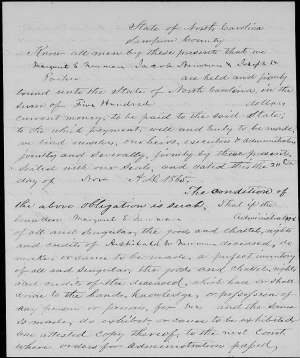 State of North Carolina
Sampson County
Know all men by these presents that we
Margaret E Newman Jacob Newman & Joseph
are held and firmly
bound unto the State of North Carolina, in the
sum of Five Hundred dollars
current money, to be paid to the said State,
to the which payment, well and truly to be made,
we bind ourselves, our heirs, executors & administrators
jointly and severally, firmly by these presents,
sealed with our Seals, and dated this the
day of Nov A.D. 1865.
The Condition of
the above Obligation is such, That if the
bounden Margaret E Newman Administratrix
of all and singular, the goods and chattels, rights
and credits of Archibald Newman deceased, do
make or cause to be made, a perfect inventory
of all and singular, the goods and chattels, rights
and credits of the deceased, which have or shall
come to the hands, knowledge, or possession of
any person or persons for her and the same
so made, do exhibit or cause to be exhibited
an attested Copy thereof, to the next Court
where orders for administration passed,